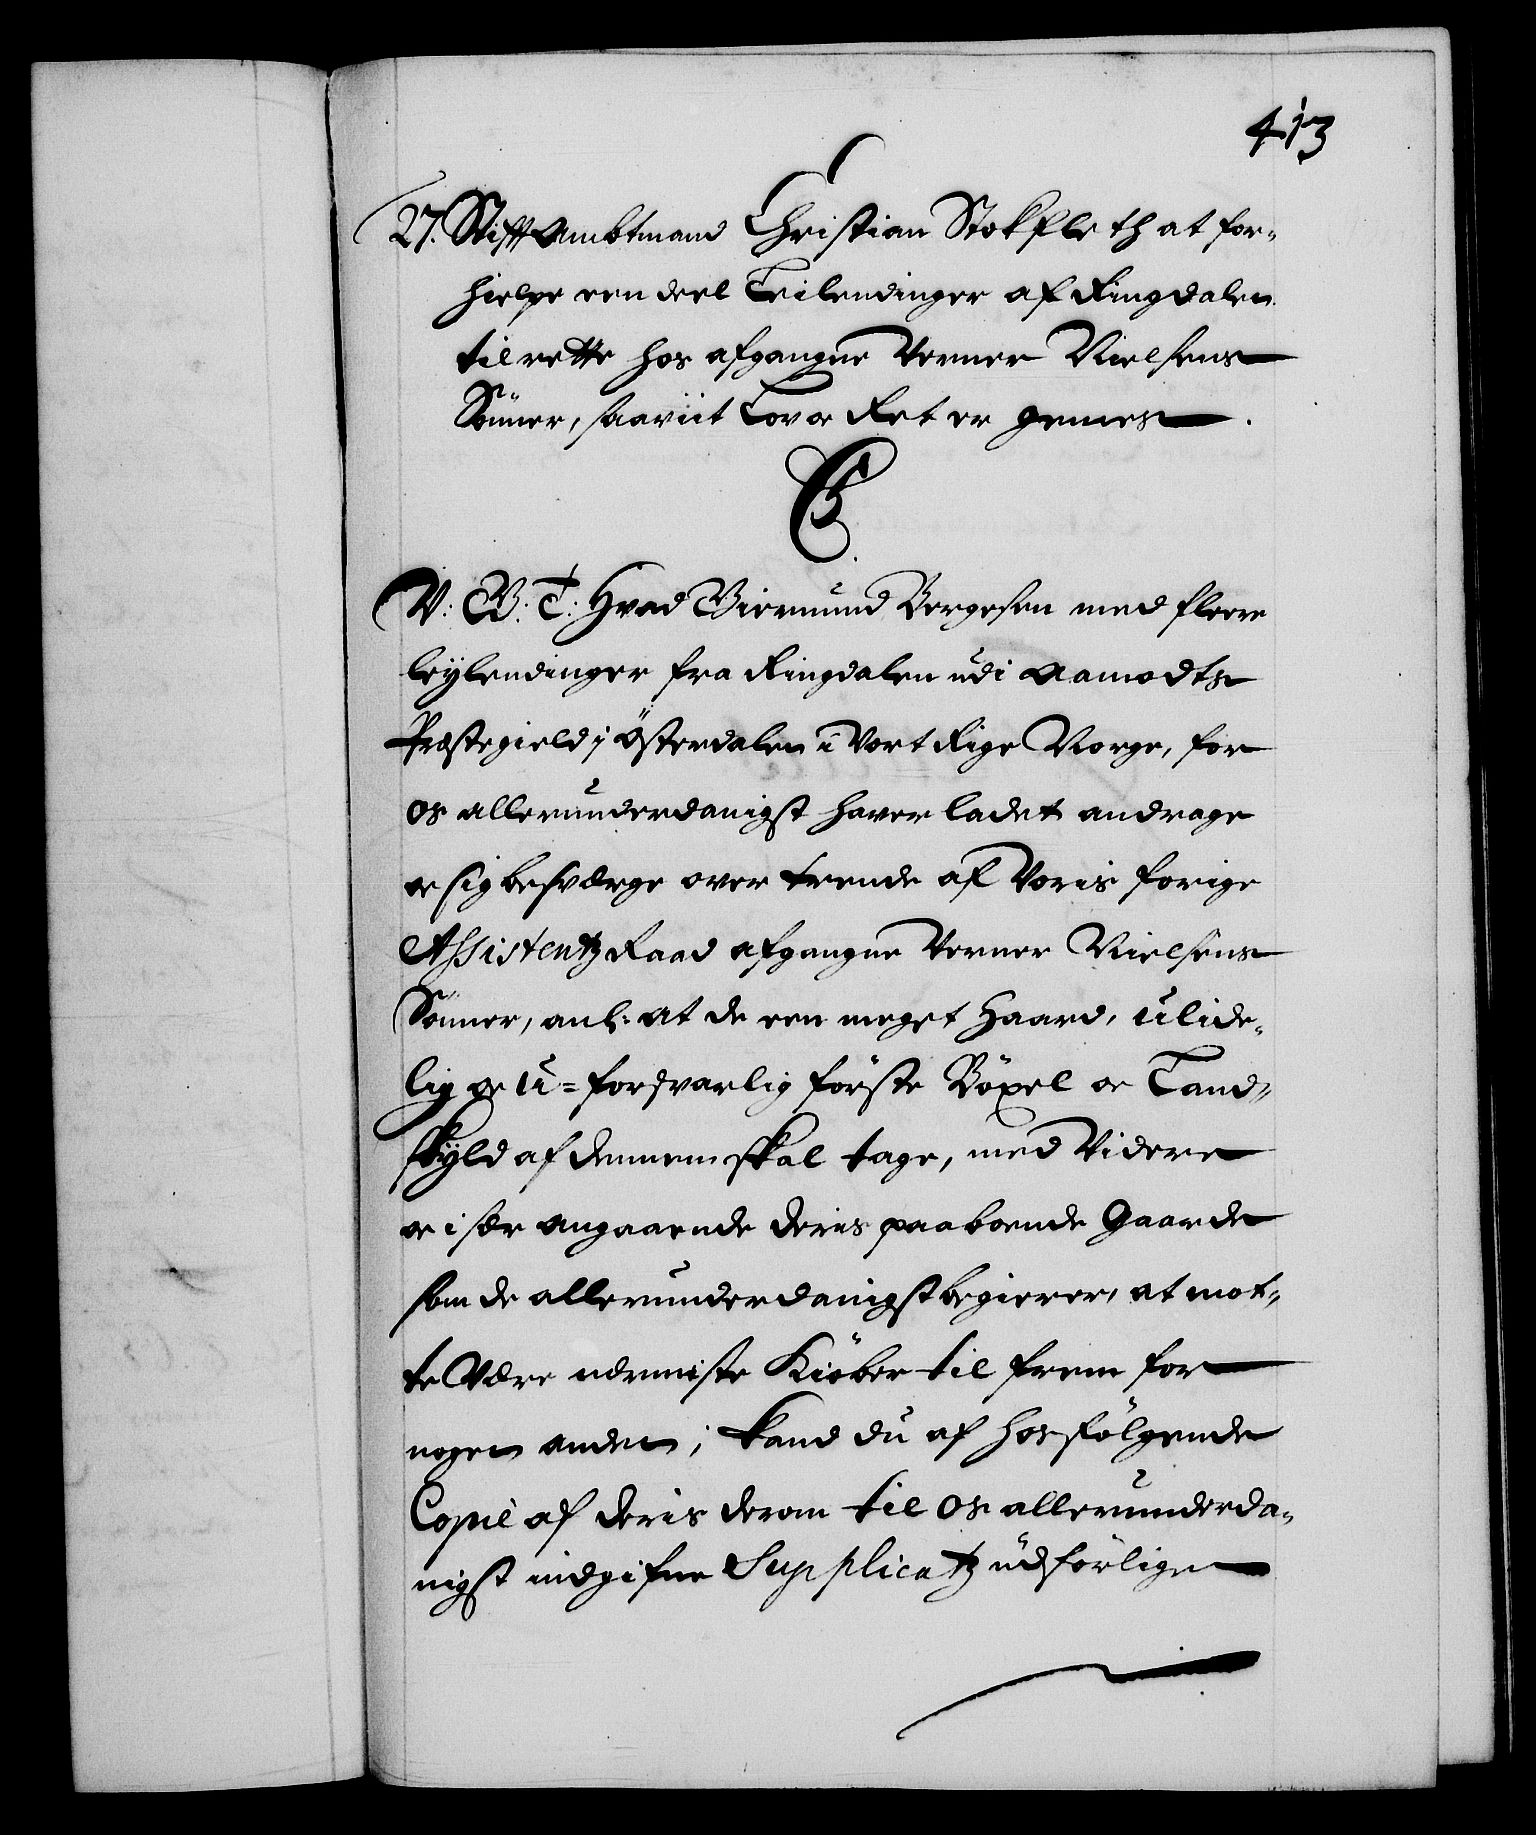 413
27. Stiftambtmand Christian Stokfleth at for-
hielpe een deel Leilendinger af Ringdalen
til rette hos afgangne Verner Nielsens
Sönner, saaviit Lov oc Ret er gemes.
V: G: T: Hvad Biermund Børgesen med fleere
leylendinger fra Ringdalen udi Aamodts
Præstegield i Österdalen i Vort Rige Norge, for
os allerunderdanigst haver ladet andrage
oc sig besværge over trende af Voris forige
Assistentz Raad afgangne Verner Nielsens
Sönner, anl: at de een meget haard, ulide-
lig oc u-forsvarlig förste Böxel oc Land-
skyld af dennem skal tage, med Videre
oc især angaaende deris paaboende Gaarde
som de allerunderdanigst begierer, at mot-
te Være nermiste Kiöber til frem for
nogen anden; kand du af hosfölgende
Copie af deris derom til Os allerunderda-
nigst indgifne Supplicatz udförlige